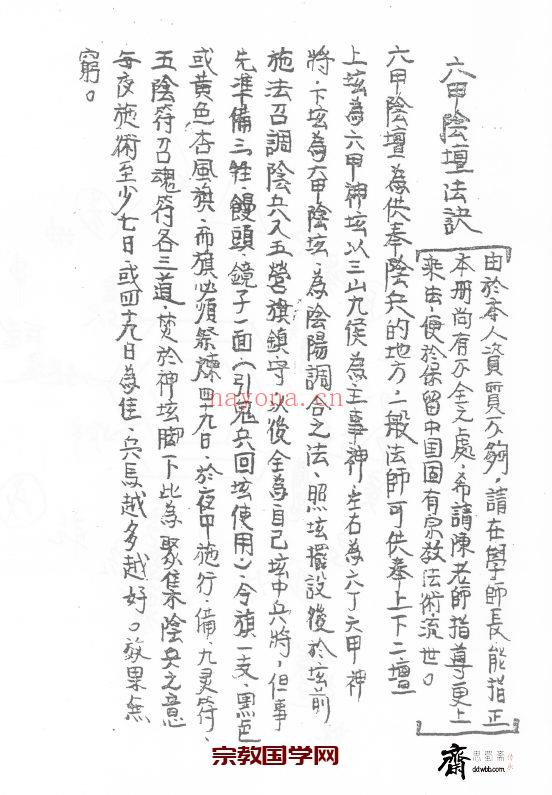 六甲陰壇法訣
由於本人資質不夠，請在學師長能指正
本册尚有不全之處，希請陳老師指導更上
乘法，便於保留中国固有宗教法術流世。
六甲陰壇為供奉陰兵的地方，一般法師可供奉上下二壇
上坛為六甲神坛以三山九侯為主事神，左右為六丁六甲神
將，下坛為六甲陰坛，為陰陽調合之法、照坛擺設後於坛前
施法召調陰兵入五營旗鎮守以後全為自己坛中兵將，但事
先準備三牲、饅頭、鏡子一面（引鬼兵回坛使用）、令旗一支、黑色
或黃色杏風旗，而旗必須祭煉四十九日，於夜中施行，備，九灵符、
五陰符召魂符各三道，焚於神坛脚下比為聚集陰兵之意
每夜施術至少七日，或四十九日為佳，兵馬越多越好。效果無
窮。
hayona.cn
宗教国学网
齋
思蜀斋
ddwbb.com